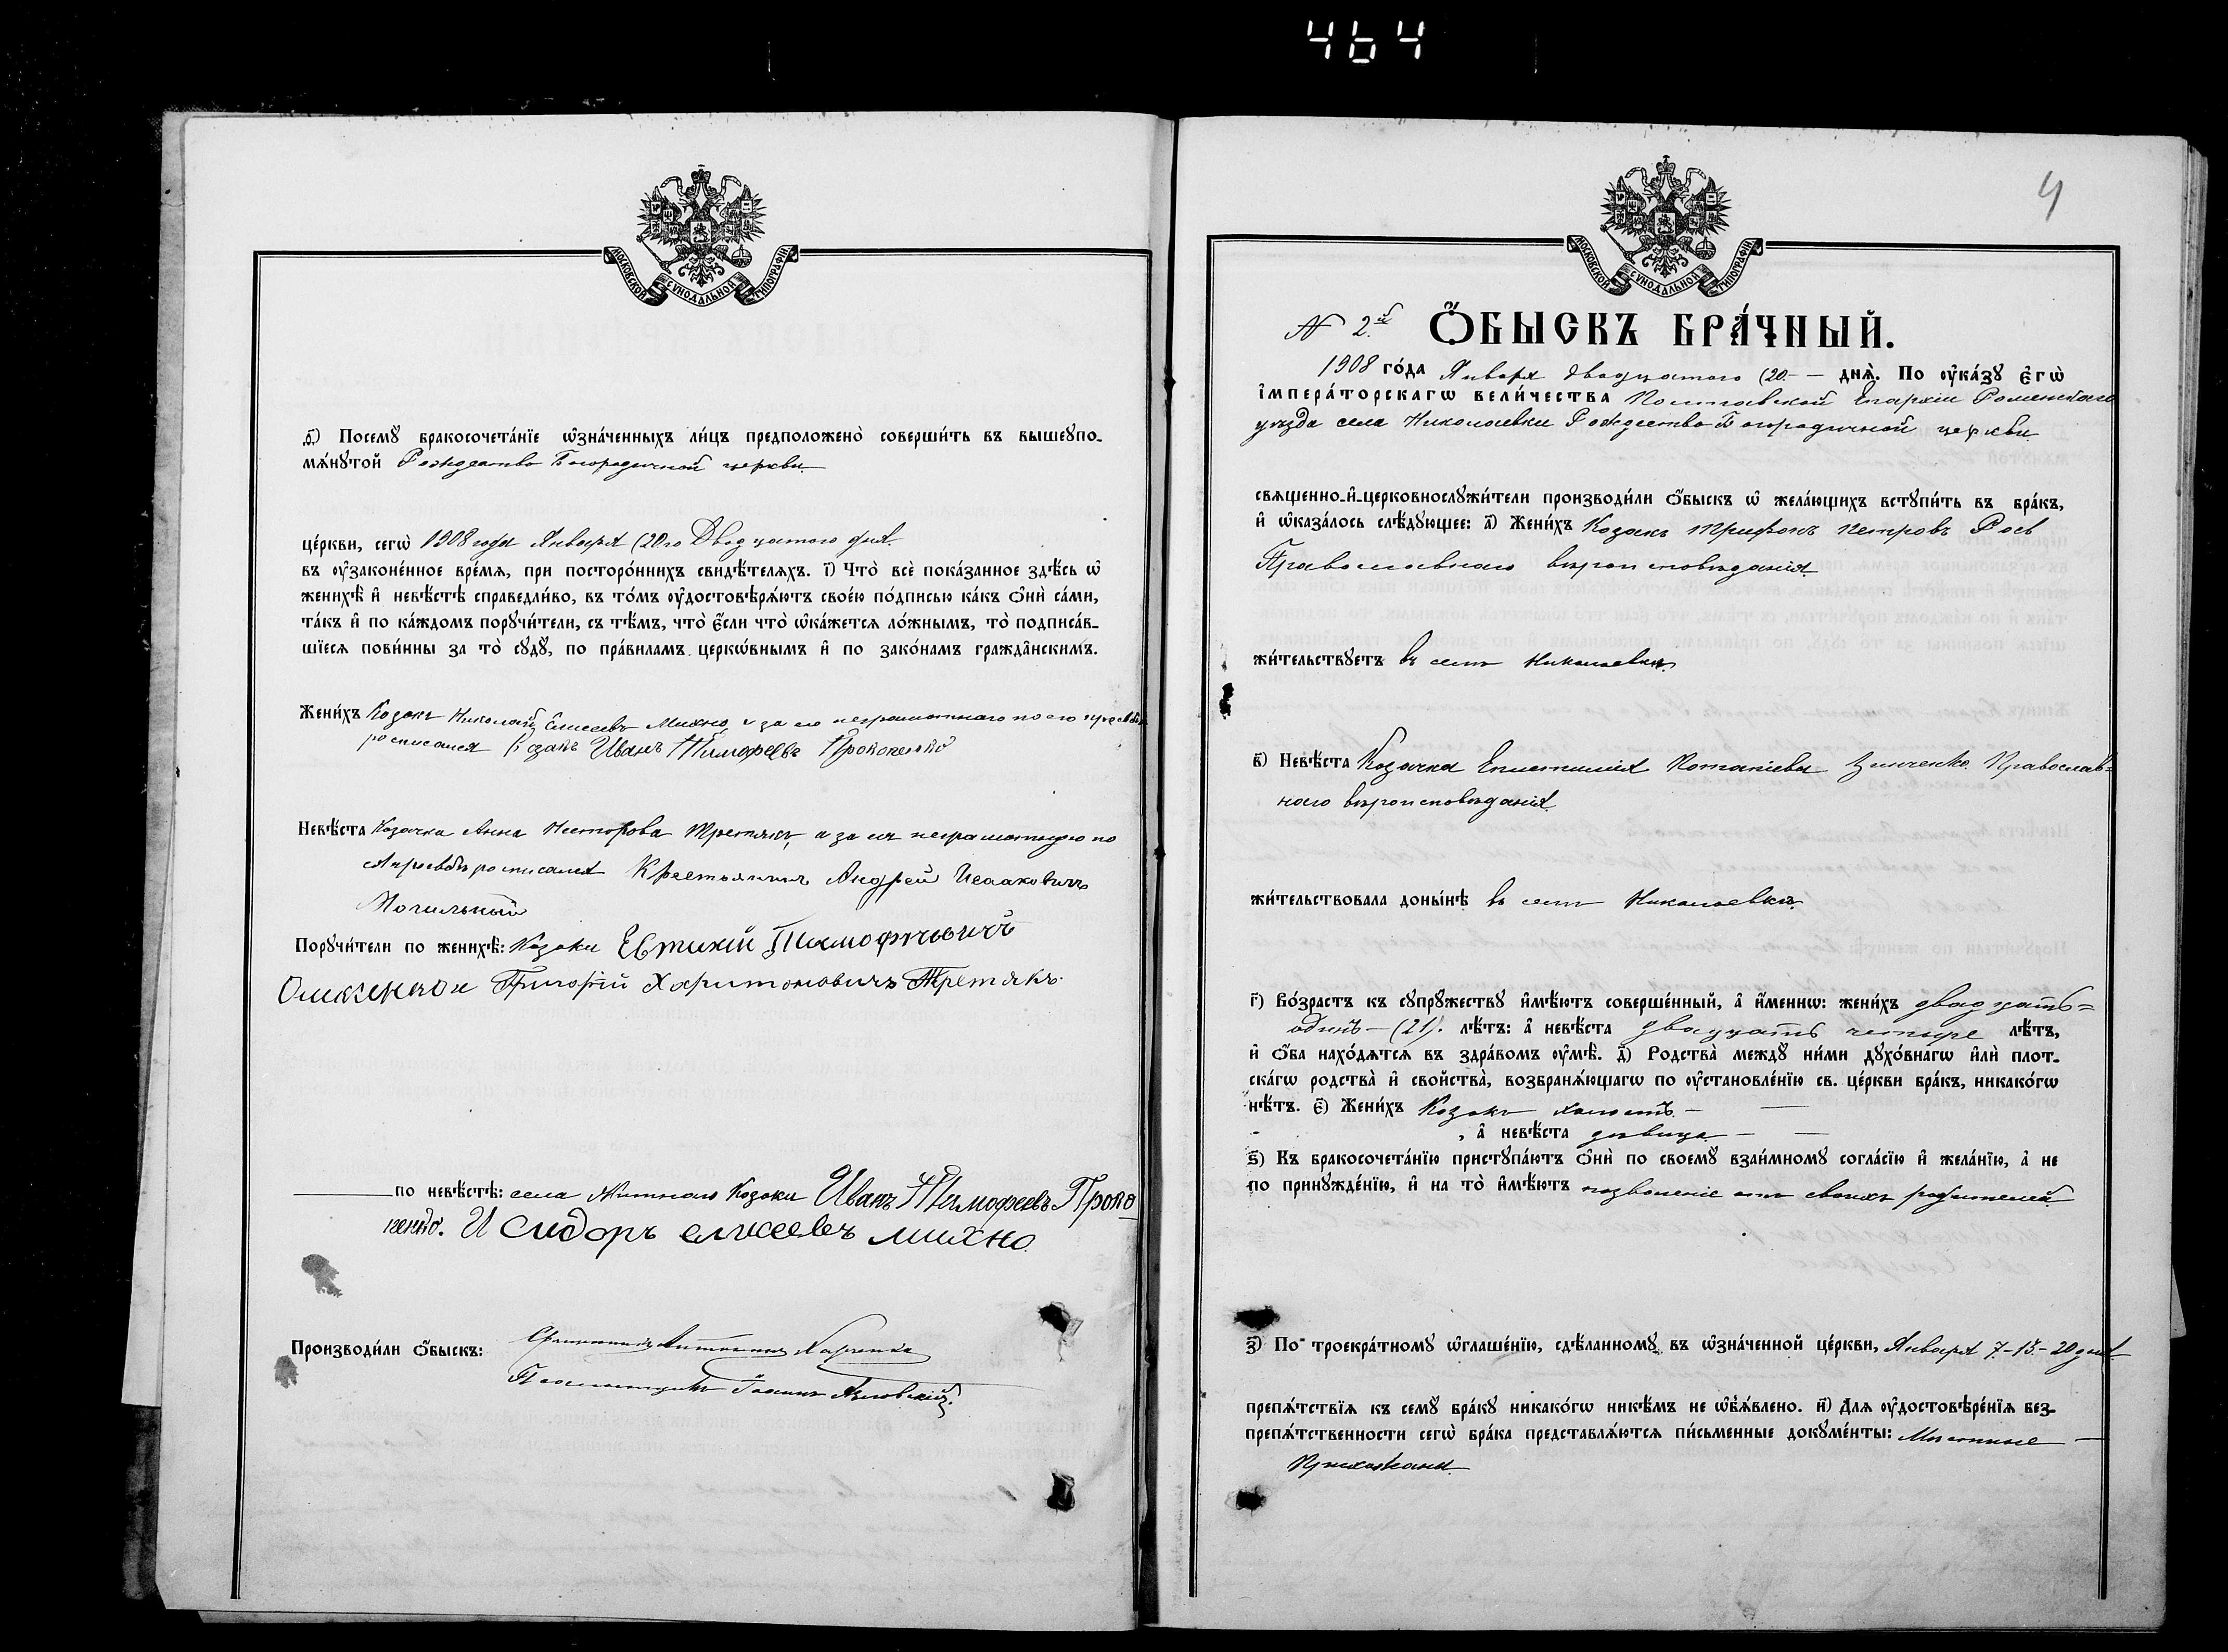 464
МОСКОВСКОЙ СѴНОДАЛЬНОЙ ТИПОГРАФІИ.
Посемꙋ̀ бракосочета́нїе ѡ҆зна́ченныхъ ли́цъ предположено̀ соверши́ть въ вышеꙋпо-
мѧ́нꙋтой Рождество Богородичной церкви
це́ркви, сегѡ̀ 1908 года Января (20го Двадцатого дня.
въ ᲂу҆законе́нное вре́мѧ, при посторо́ннихъ свидѣ́телѧхъ. і҃) Что̀ всѐ пока́занное здѣ́сь ѡ҆
женихѣ̀ и҆ невѣ́стѣ справедли́во, въ то́мъ ᲂу҆достовѣрѧ́ютъ свое́ю по́дписью ка́къ ѻ҆нѝ са́ми,
та́къ и҆ по ка́ждомъ порꙋчи́тели, съ тѣ́мъ, что̀ є҆́сли что̀ ѡ҆ка́жетсѧ ло́жнымъ, то̀ подписа́в-
шїесѧ пови́нны за то̀ сꙋдꙋ̀, по пра́виламъ церкѡ́внымъ и҆ по зако́намъ гражда̂нскимъ.
Жени́хъ Козакъ Николай Елисеевъ Михно, а за его неграмотнаго по его просьбѣ
росписался Козакъ Иванъ Тимофеевъ Прокопенко
Невѣ́ста Козачка Анна Несторова Третякъ, а за ея неграмотную по
ея просьбѣ росписался Крестьянинъ Андрей Исааковичъ
Могильный
Порꙋчи́тели по женихѣ̀: Козаки Евтихій Тимофѣевичъ
Григорій Харитоновичъ Третякъ.
по невѣ́стѣ: села Козаки Иванъ Тимофеевъ Проко
пенко. Исидоръ елисеевъ михно
Производи́ли ѻ҆́быскъ: Священникъ Харченко
Псаломщикъ Іоаннъ
4
МОСКОВСКОЙ СѴНОДАЛЬНОЙ ТИПОГРАФІИ.
N 2й Ѻ҆́БЫСКЪ БРА́ЧНЫЙ.
1908 го́да Января двадцатого (20.- — днѧ̀. По ᲂу҆ка́зꙋ Є҆гѡ̀
І҆мпера́торскагѡ Вели́чества Полтавской Епархіи Роменскаго
уѣзда села Николаевки Рождество Богородичной церкви
свѧщенно-и҆-церковнослꙋжи́тели производи́ли ѻ҆́быскъ ѡ҆ жела́ющихъ встꙋпи́ть въ бра́къ,
и҆ ѡ҆каза́лось слѣ́дꙋющее: а҃) Жени́хъ Козакъ Трифонъ Петровъ
Православнаго вѣроисповѣданія.
жи́тельствꙋетъ въ селѣ Николаевкѣ.
в҃) Невѣ́ста Козачка Епистимія Потапіева Зинченко. Православ=
наго вѣроисповѣданія.
жи́тельствовала доны́нѣ въ селѣ Николаевкѣ.
г҃) Во́зрастъ къ сꙋпрꙋ́жествꙋ и҆мѣ́ютъ соверше́нный, а҆ и҆́менно: жени́хъ двадцать=
одинъ — (21). лѣ́тъ: а҆ невѣ́ста двадцать четыре лѣ́тъ,
и҆ ѻ҆́ба нахо́дѧтсѧ въ здра́вомъ ᲂу҆мѣ̀. д҃) Родства̀ междꙋ̀ ни́ми дꙋхо́внагѡ и҆лѝ плот-
ска́гѡ родства̀ и҆ свойства̀, возбранѧ́ющагѡ по ᲂу҆становле́нїю св. це́ркви бра́къ, никако́гѡ
нѣ́тъ. є҃) Жени́хъ Козакъ холостъ. —
, а҆ невѣ́ста дѣвица —
ѕ҃) Къ бракосочета́нїю пристꙋпа́ютъ ѻ҆нѝ по своемꙋ̀ взаи́мномꙋ согла́сїю и҆ жела́нїю, а҆ не
по принꙋжде́нїю, и҆ на то̀ и҆мѣ́ютъ позволеніе отъ своихъ родителей.
з҃) По троекра́тномꙋ ѡ҆глаше́нїю, сдѣ́ланномꙋ въ ѡ҆зна́ченной це́ркви, Января 7.-13.-20 дня.
препѧ́тствїѧ къ семꙋ̀ бра́кꙋ никако́гѡ никѣ́мъ не ѡ҆б̾ѧ́влено. и҃) Длѧ ᲂу҆достовѣре́нїѧ без-
препѧ́тственности сегѡ̀ бра́ка представлѧ́ютсѧ пи́сьменные докꙋме́нты: Мѣстные —
Прихожане.